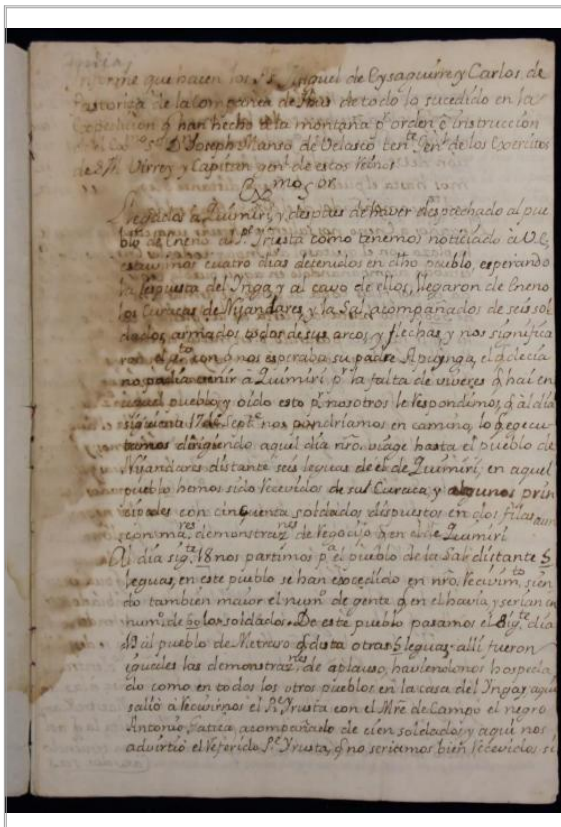 Informe que hacen los PP. Miguel de Eysaguirre y Carlos de
Pastoriza de la Compañia de Jhus de todo lo sucedido en la
Expedicion q̃ han hecho a la montaña pr orden, è instruccion
del Exmo Sr Dn Joseph Manso de Velasco tente Genl de los Exercitos
de S.M. Virrey y Capitan genl de estos Reinos
Exmo Sor
Llegados à Quimiri, y despues de haver despachado al pue
blo de Eneno al Pe Yrusta como tenemos noticiado à V.E.
estuvimos quatro dias detenidos en dho pueblo, esperando
la respuesta del Ynga, y al cavo de ellos, llegaron de Eneno
los Curacas de Nijandares y la Sal, acompañados de seis sol
dados, armados todos de sus arcos, y flechas, y nos significa
ron el gto con q̃ nos esperaba su padre Apuynga, el q̃ decia
no podia venir à Quimiri pr la falta de viveres q̃ hai en
aquel pueblo, y oido esto pr nosotros le respondimos, q̃ al dia
siguiente 17 de Septe nos pondriamos en camino, lo q̃ egecu
tamos dirigiendo aquel dia nro. viage hasta el pueblo de
Nijandares distante seis leguas de el de Quimiri; en aquel
pueblo hemos sido recevidos de su Curaca, y algunos prin
cipales con cinquenta soldados dispuestos en dos filas, aun
con mares demonstraznes de regocijo q̃ en el de Quimiri
El dia sigte 18 nos partimos pa el pueblo de la Sal distante 5
leguas, en este pueblo se han excedido en nro. recivimto, sien
do tambien maior el numo de gente q̃ en el havia, y serian en
numo de 60 los soldados. De este pueblo pasamos el sigte dia
19 al pueblo de Metraro q̃ dista otras 5 leguas; alli fueron
iguales las demonstraznes de aplauso, haviendonos hospeda
do como en todos los otros pueblos en la casa del Ynga; aqui
salió a recivirnos el Pe Yrusta con el Mre de Campo el negro
Antonio Gatica, acompañado de cien soldados, y aqui nos
advirtió el referido Pe Yrusta, q̃ no seriamos bien recevidos si